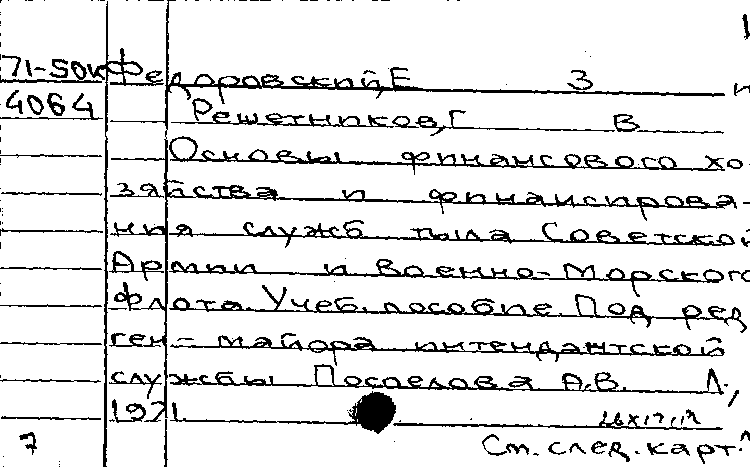 71-50к Федоровский, Е З и
4064 Решетников, Г В
Основы финансового хо-
зяйства и финансирова-
ния служб тыла Советской
Армии и Военно-Морского
флота. Учеб. пособие. Под ред.
ген-майора интендантской
службы Посаелова А.В. Л.,
1971.
7 См. след. карт.